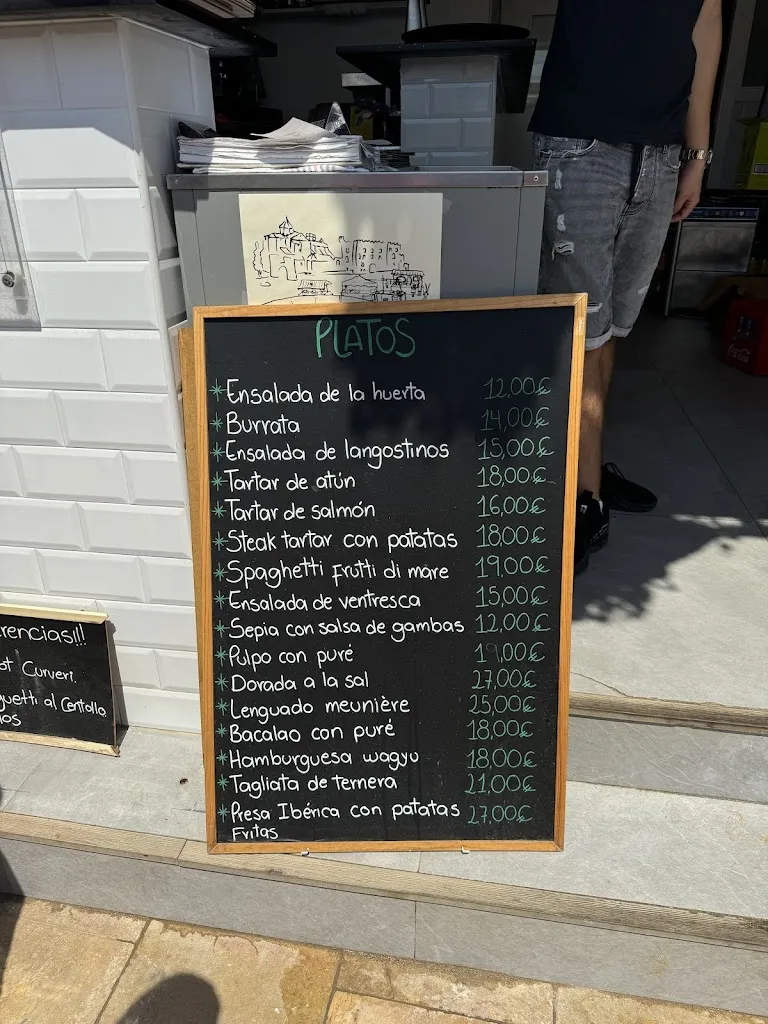 PLATOS
* Ensalada de la huerta 12,00€
* Burrata 14,00€
* Ensalada de langostinos 15,00€
* Tartar de atún 18,00€
* Tartar de salmón 16,00€
* Steak tartar con patatas 18,00€
* Spaghetti Frutti di mare 19,00€
* Ensalada de ventresca 15,00€
* Sepia con salsa de gambas 12,00€
* Pulpo con puré 19,00€
* Dorada a la sal 27,00€
* Lenguado meunière 25,00€
* Bacalao con puré 18,00€
* Hamburguesa wagyu 18,00€
* Tagliata de ternera 21,00€
* Presa Ibérica con patatas 27,00€
Fritas
rencias!!!
ot Curveri.
guetti al Centollo
los
Coca-Cola